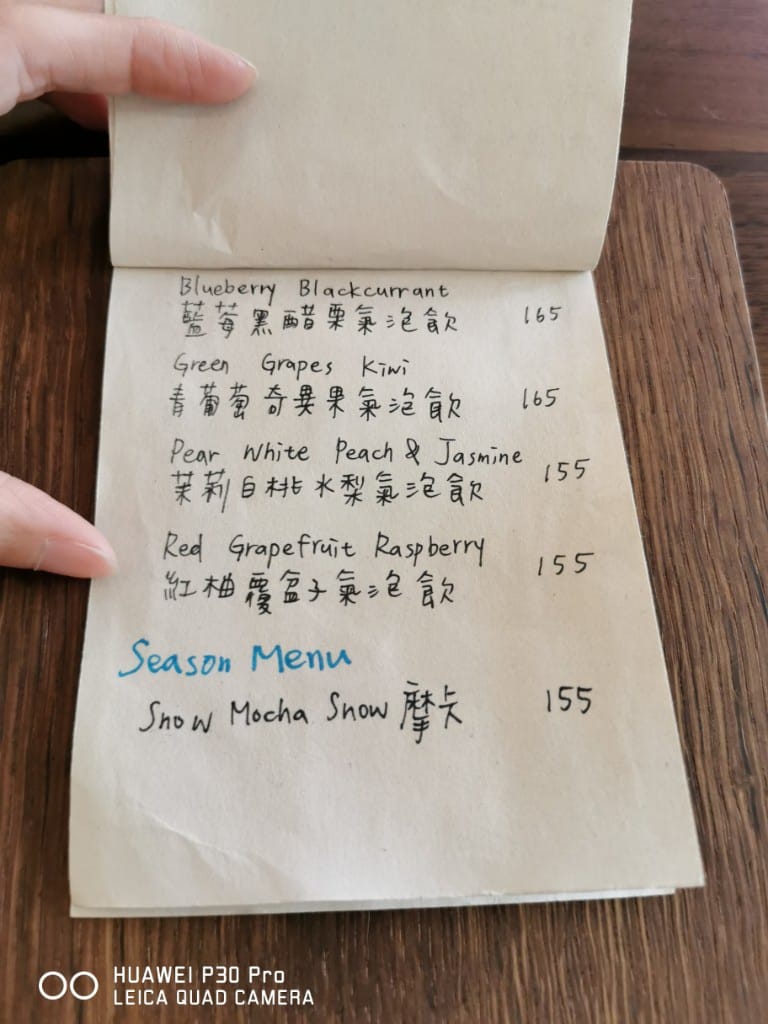 Blueberry Blackcurrant
藍莓黑醋栗氣泡飲 165
Green Grapes Kiwi
青葡萄奇異果氣泡飲 165
Pear White Peach & Jasmine
茉莉白桃水梨氣泡飲 155
Red Grapefruit Raspberry
紅柚覆盆子氣泡飲 155
Season Menu
Snow Mocha Snow 摩卡 155
HUAWEI P30 Pro
LEICA QUAD CAMERA